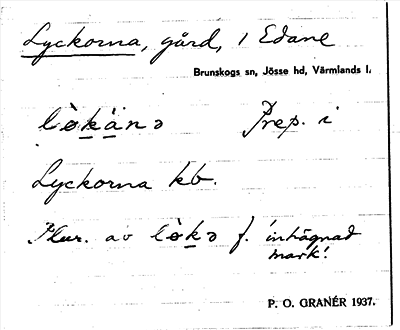 Lyckorna, gård, i Edane
Brunskogs sn, Jösse hd, Värmlands l.
lo̲k̲änə Prep. i
Lyckorna kb.
Plur. av lòk̲ə f. 'inhägnad
mark'.
P. O. GRANÉR 1937.